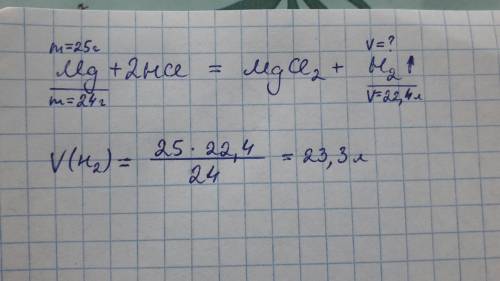 m=25г V=?
Mg + 2HCl = MgCl₂ + H₂↑
m=24г V=22,4л
V(H₂) = 25 · 22,4 / 24 = 23,3 л